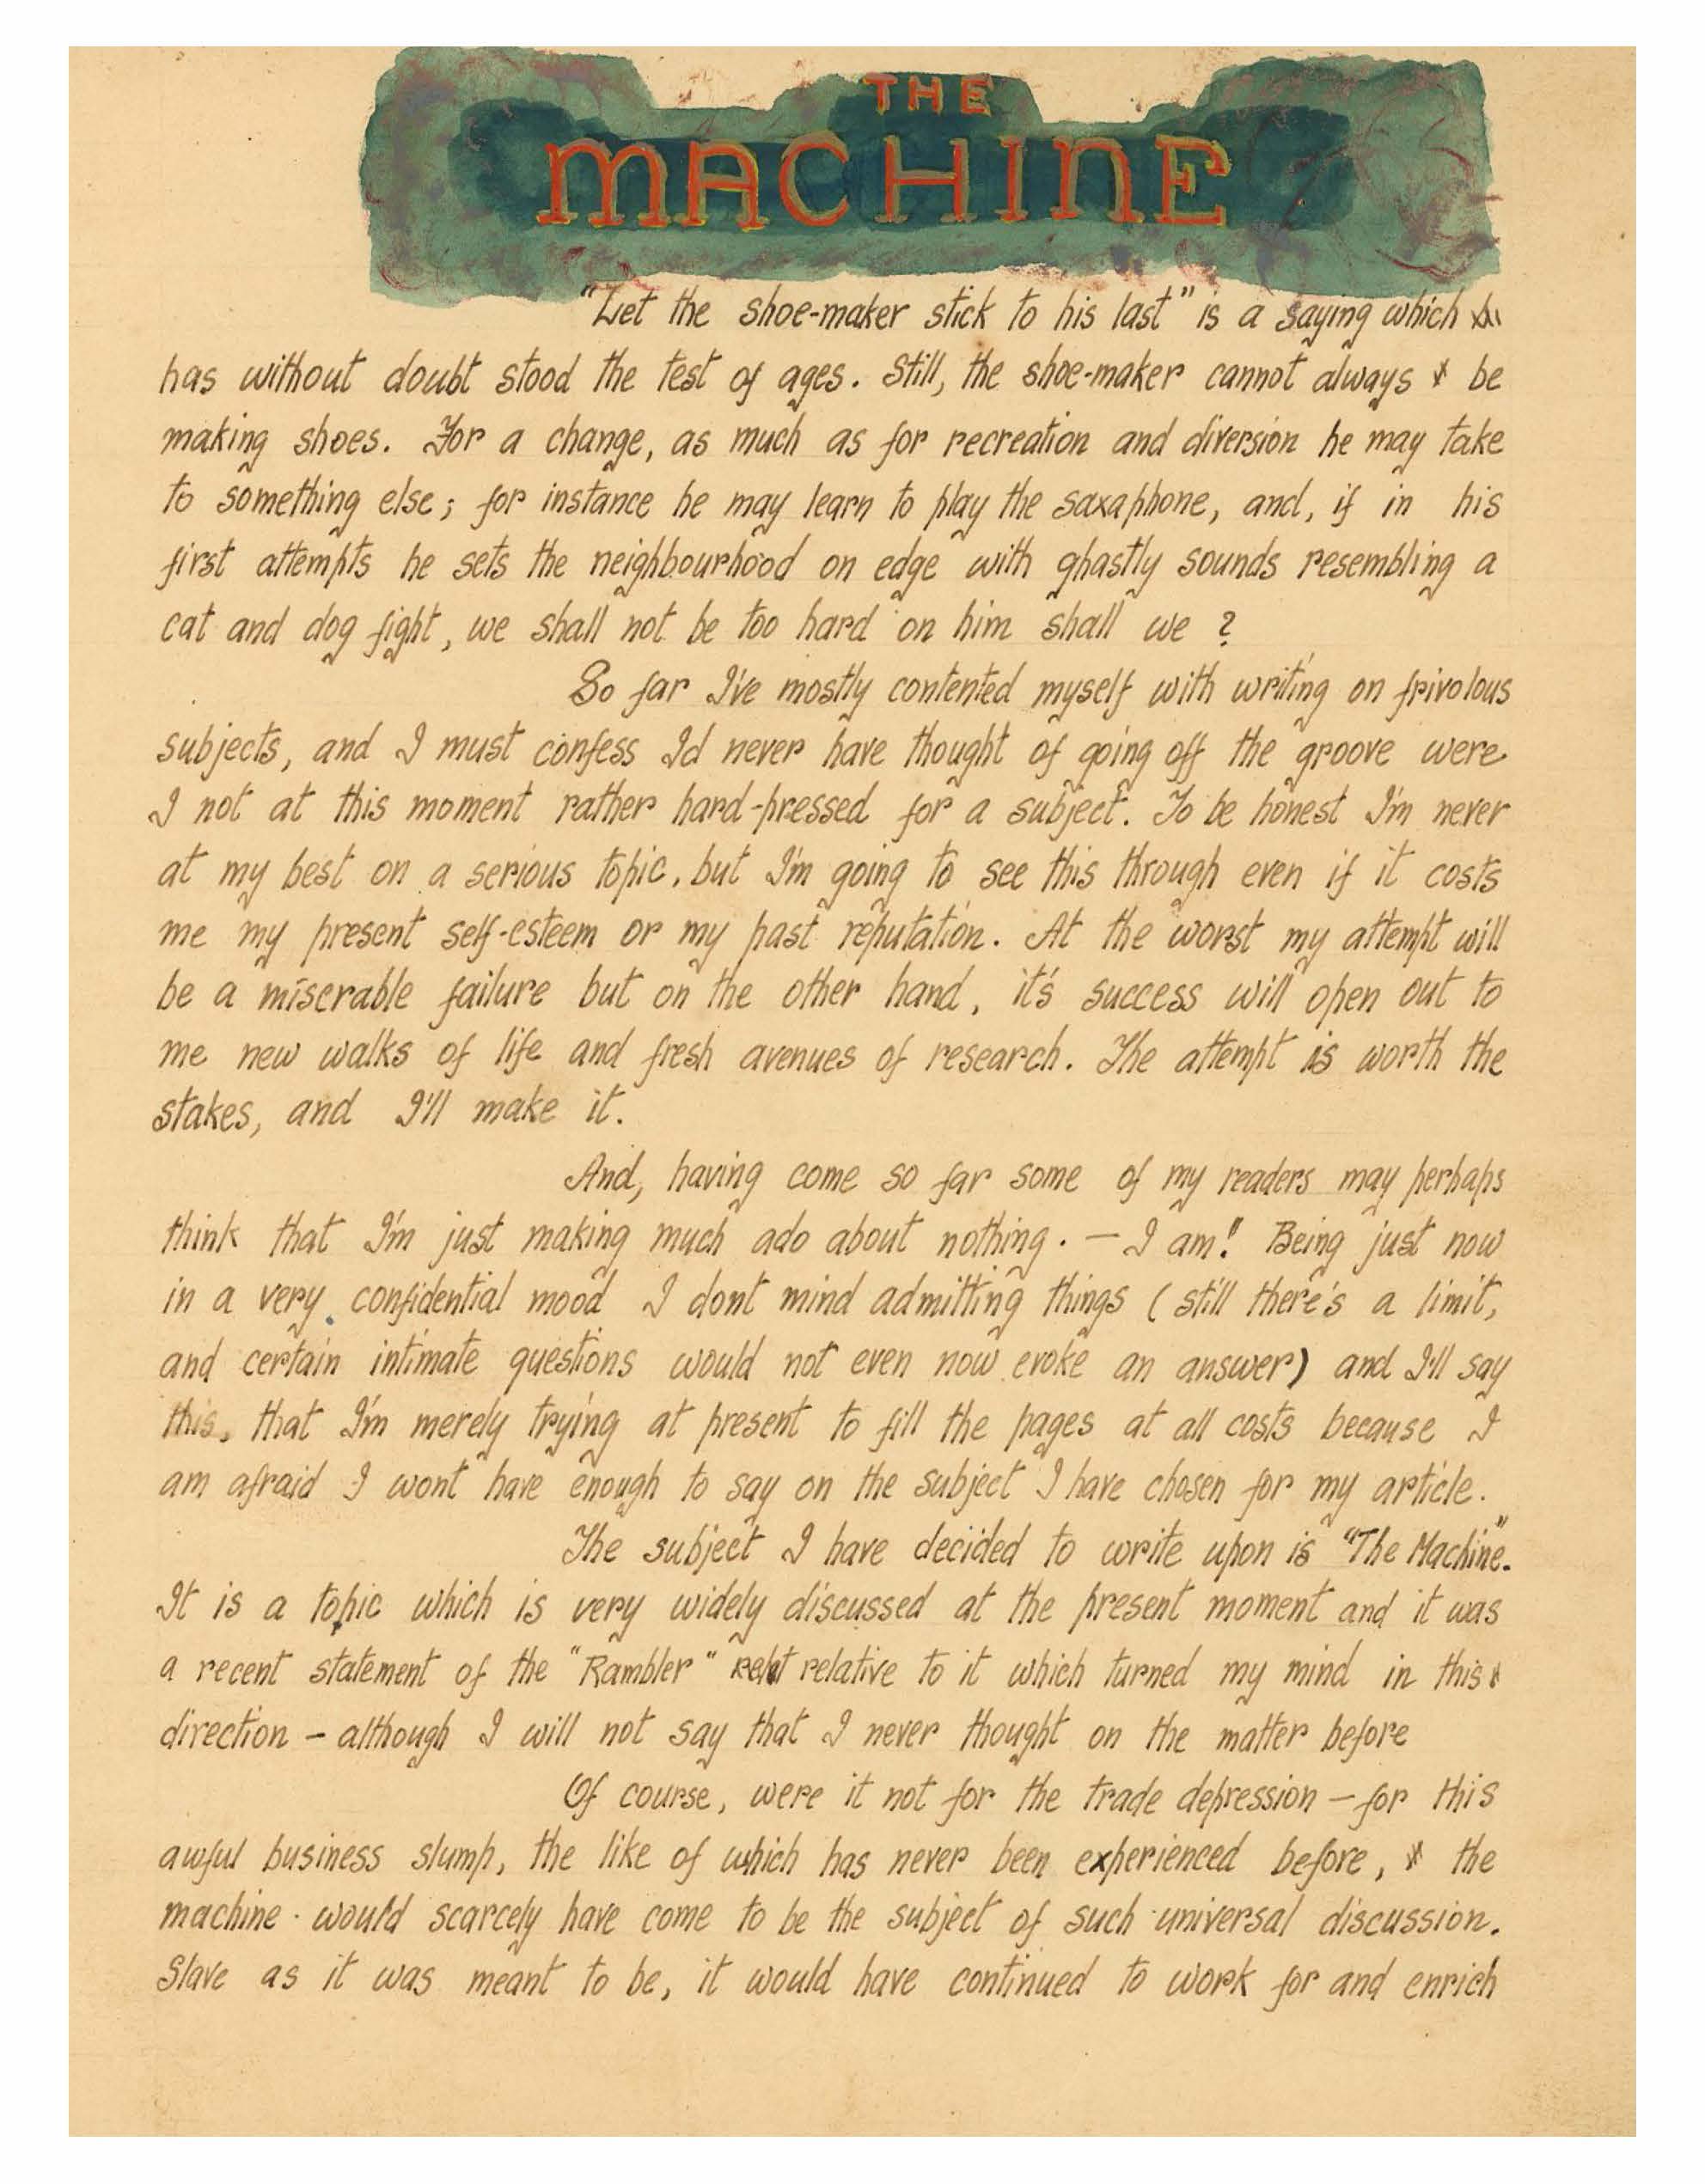 THE
MACHINE
"Let the shoe-maker stick to his last" is a saying which
has without doubt stood the test of ages. Still, the shoe-maker cannot always be
making shoes. For a change, as much as for recreation and diversion he may take
to something else; for instance he may learn to play the saxaphone, and, if in his
first attempts he sets the neighbourhood on edge with ghastly sounds resembling a
cat and dog fight, we shall not be too hard on him shall we ?
So far I've mostly contented myself with writing on frivolous
subjects, and I must confess Id never have thought of going off the groove were
I not at this moment rather hard-pressed for a subject. To be honest I'm never
at my best on a serious topic, but I'm going to see this through even if it costs
me my present self-esteem or my past reputation. At the worst my attempt will
be a miserable failure but on the other hand, it's success will open out to
me new walks of life and fresh avenues of research. The attempt is worth the
stakes, and I'll make it.
And, having come so far some of my readers may perhaps
think that I'm just making much ado about nothing. — I am!! Being just now
in a very confidential mood I dont mind admitting things (still there's a limit,
and certain intimate questions would not even now evoke an answer) and I'll say
this, that I'm merely trying at present to fill the pages at all costs because I
am afraid I wont have enough to say on the subject I have chosen for my article.
The subject I have decided to write upon is "The Machine".
It is a topic which is very widely discussed at the present moment and it was
a recent statement of the "Rambler" relative to it which turned my mind in this
direction – although I will not say that I never thought on the matter before
Of course, were it not for the trade depression – for this
awful business slump, the like of which has never been experienced before, the
machine would scarcely have come to be the subject of such universal discussion.
Slave as it was meant to be, it would have continued to work for and enrich